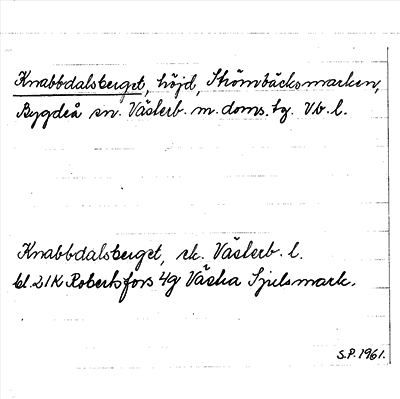 Knabbdalsberget, höjd, Strömbäcksmarken,
Bygdeå sn. Västerb. m. doms. tg. Vb. l.
Knabbdalsberget, ek. Västerb. l.
bl. 21K Robertsfors 4g Västra Sjulsmark.
S.P. 1961.